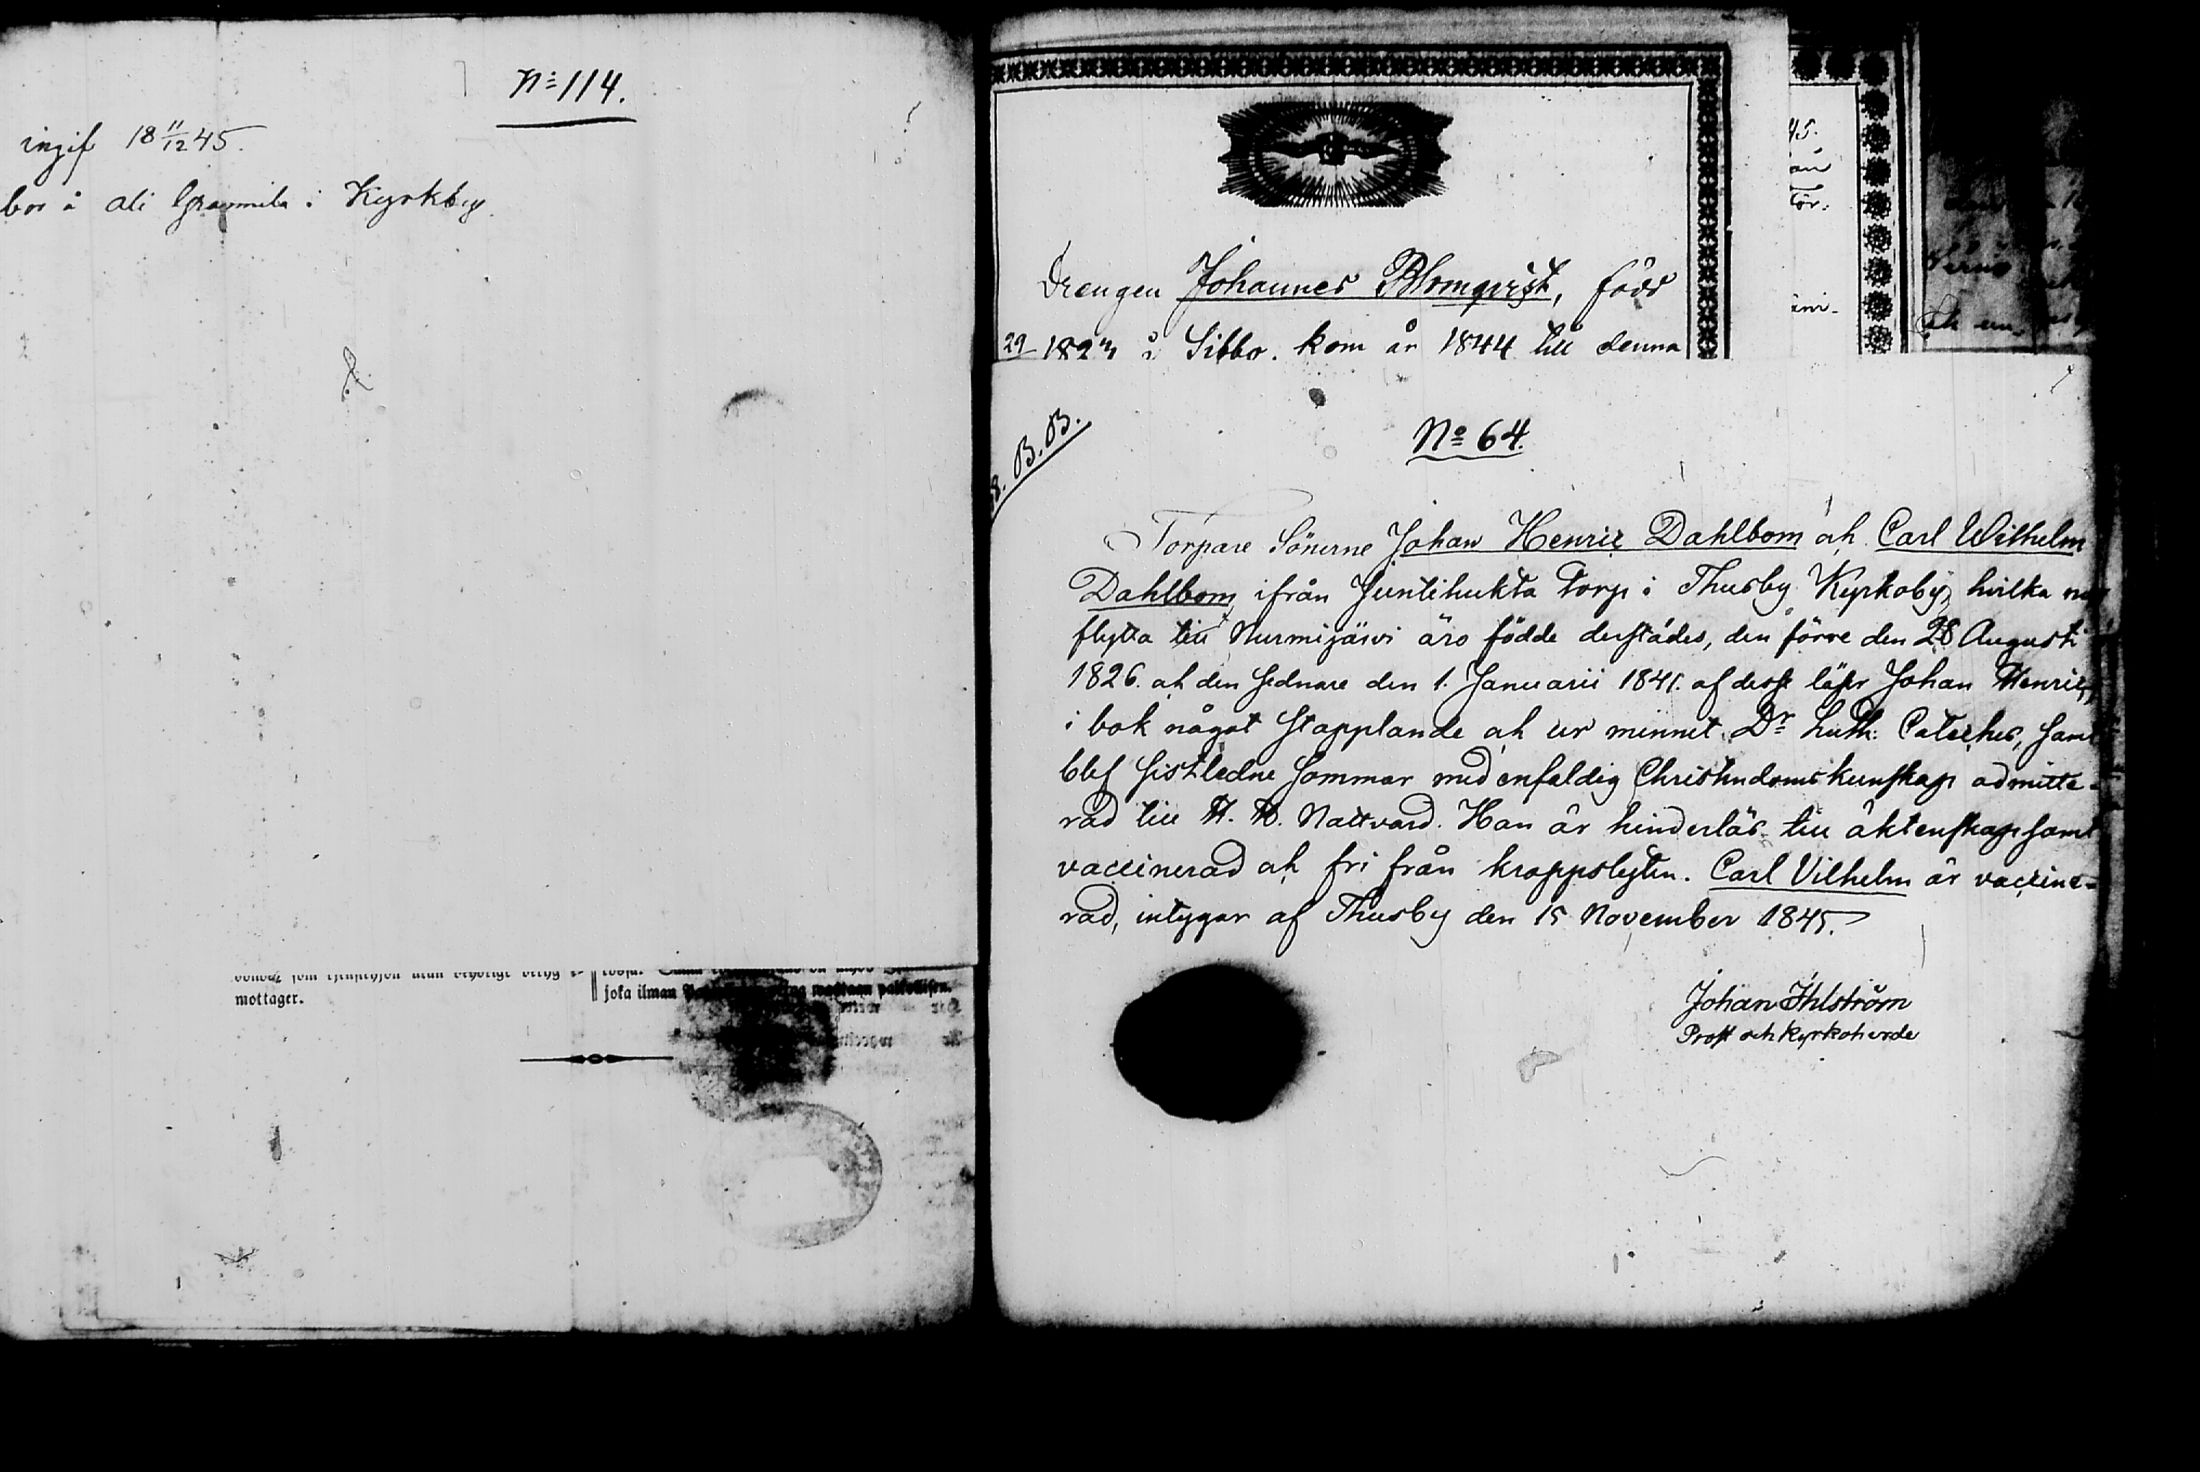 No 114.
ingif 18 11/12 45.
bor å ali Grannila i Kyrkby.
mottager.
joka ilman
Drengen Johannes Blomqvist, född
29 1823 i Sibbo. kom år 1844 till denna
45.
För.
B. B.
No 64.
Torpare Sönerne Johan Henric Dahlbom och Carl Wilhelm
Dahlbom, ifrån Juntihukta torp i Thusby Kyrkoby, hvilka
flytta till Nurmijärvi äro födde derstädes, den förre den 28 Augusti
1826. och den sednare den 1. Januarii 1841. af desse läser Johan Henric,
i bok något stapplande och ur minnet Dr Luth: Cateches, samt
blef sistledne sommar med enfaldig Christendomskunskap admitte-
rad till H. H. Nattvard. Han är hinderlös till äktenskap samt
vaccinerad och fri från kroppslyten. Carl Vilhelm är vaccine-
rad, intygar af Thusby den 15 November 1845.
Johan Ihlström
Prost och Kyrkoherde